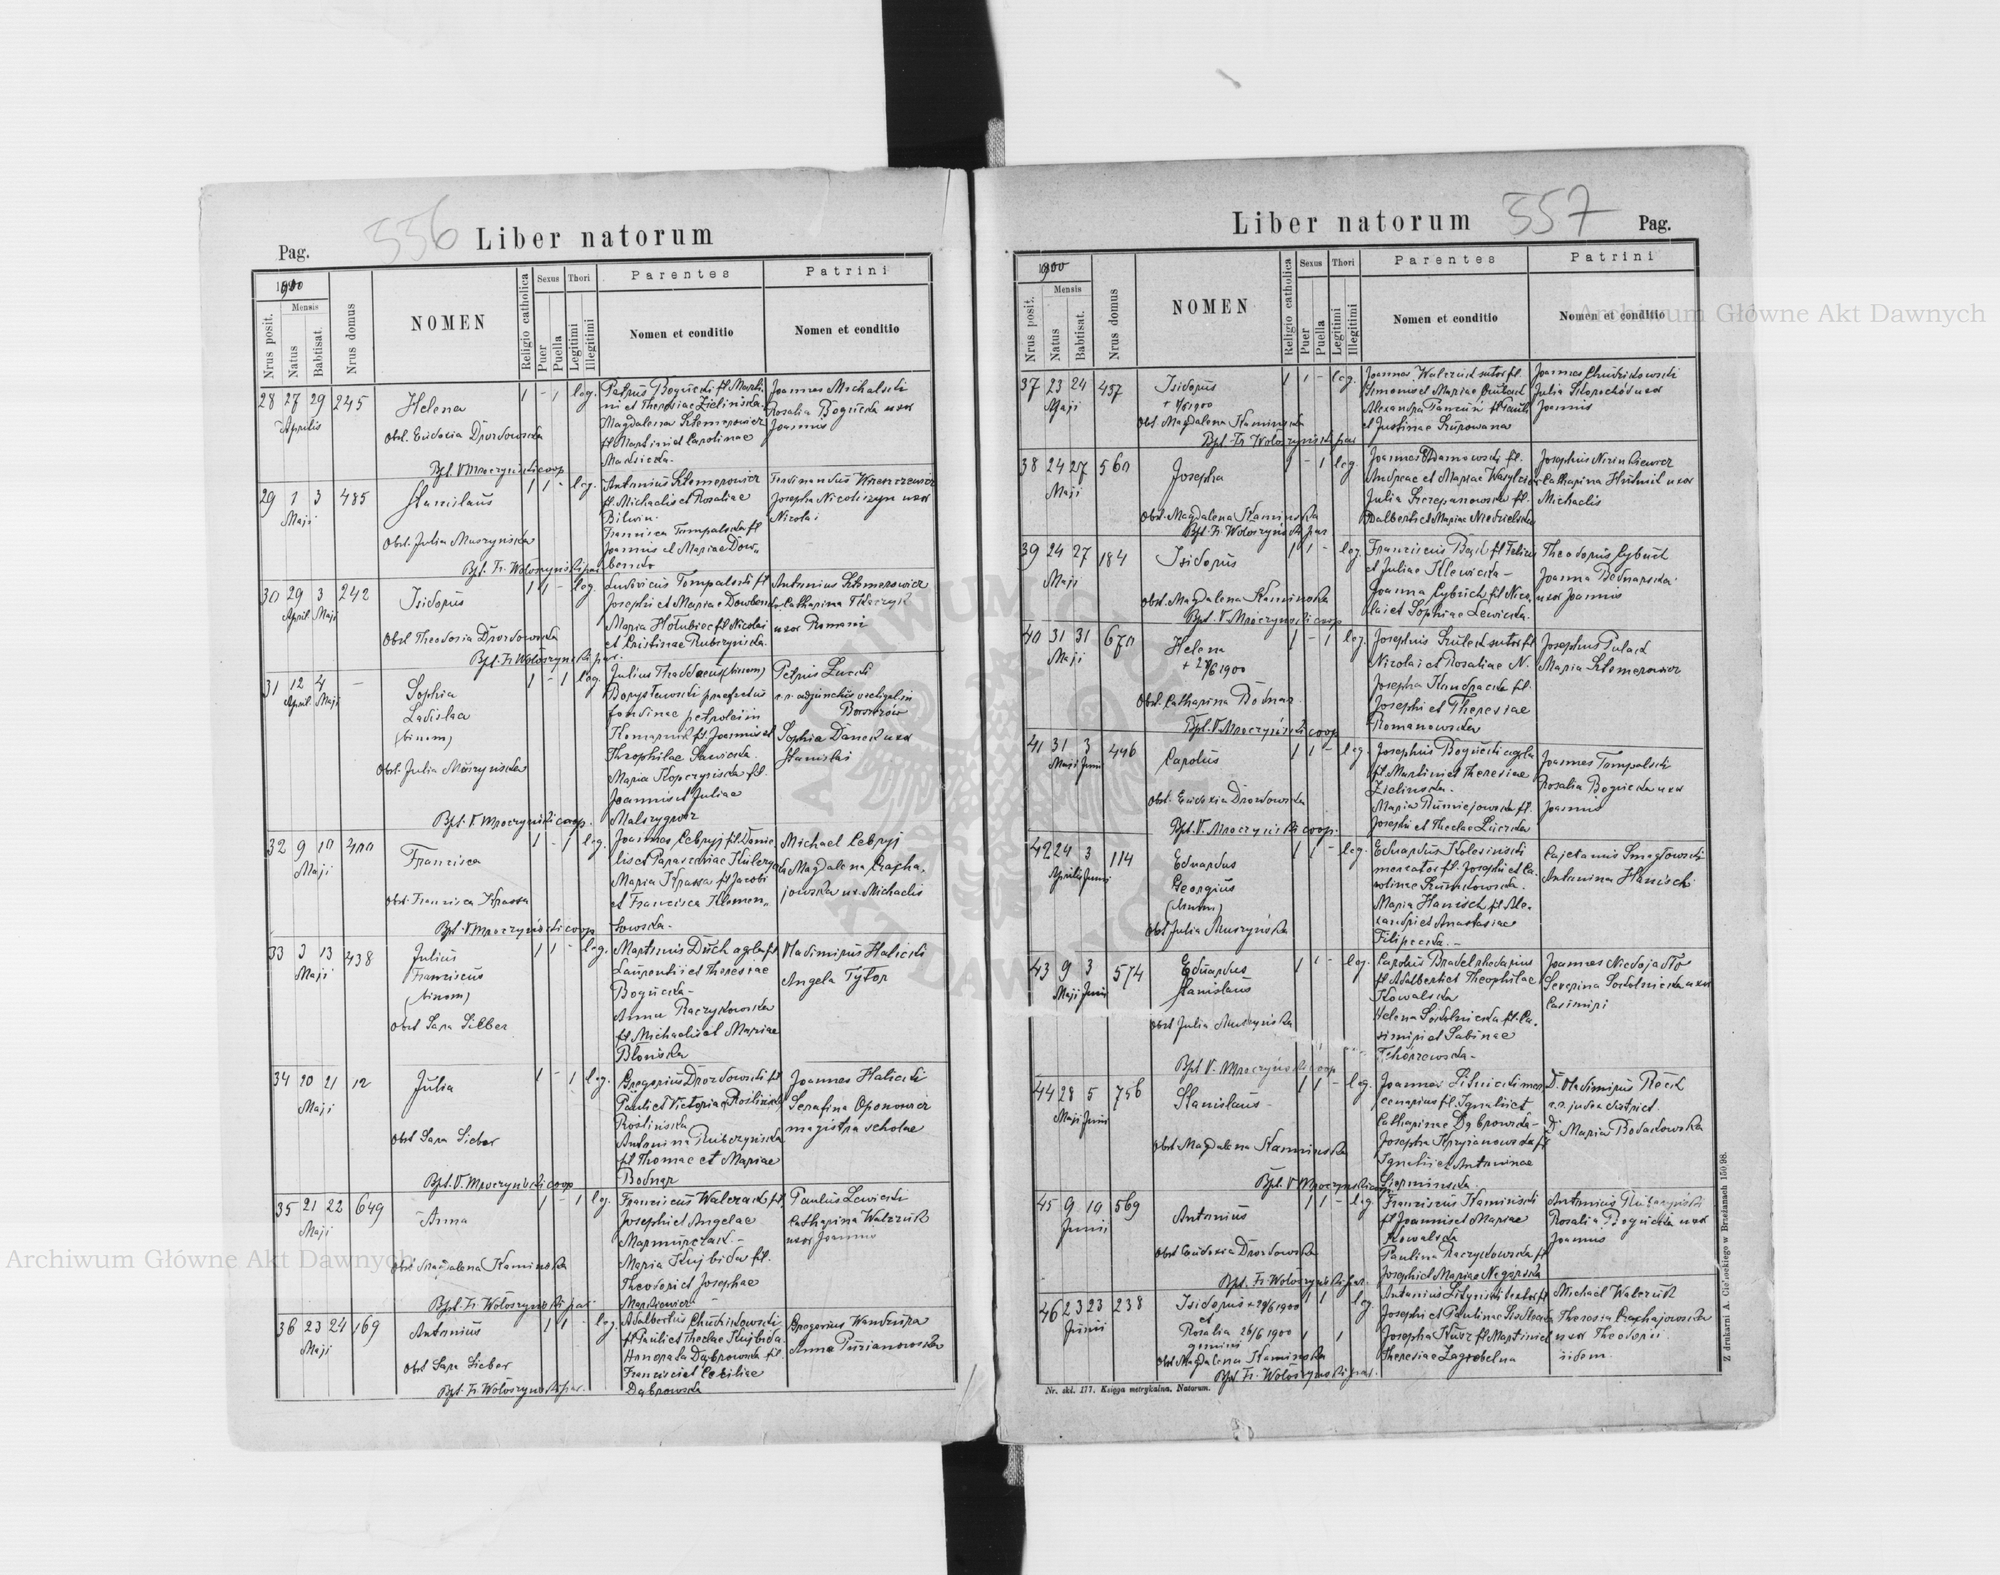 556
Liber natorum
Pag.
1900
Nrus posit.
Mensis
Natus
Babtisat.
Nrus domus
NOMEN
Religio catholica
Sexus
Puer
Puella
Thori
Legitimi
Illegitimi
Parentes
Nomen et conditio
Patrini
Nomen et conditio
28 27 29 245 Helena 1 - 1 leg.
Aprilis
Obst. Eudoxia Drozdowska
Bpt. V. Mroczyński coop
Petrus Bogucki fil. Marti-
ni et Theresiae Zielińska.
Magdalena Klemerowicz
fil. Martini et Carolinae
Joannes Michalski
Rosalia Bogucka uxor
Joannis
29 1 3 485 Stanislaus 1 1 - leg.
Maji
Obst. Julia Muszyńska
Bpt. Fr. Wołoszyński par.
Antonius Klemerowicz
fl. Michaelis et Rosaliae
Bilwin.
Francisca Tompalska fl.
Joannis et Mariae Dow-
benda
Ferdinandus Wrenczewicz
Josepha Nicoliszyn uxor
Nicolai
30 29 3 242 Isidorus 1 1 - leg.
April Maji
Obst. Theodosia Drozdowska
Bpt. Fr. Wołoszyński par.
Ludovicus Tompalski fl
Josephi et Mariae Dowbenda
Maria Hołubiec fl. Nicolai
et Cristinae Rubczyńska.
Antonius Klemerowicz
Catharina Tkaczyk
uxor Romani
31 12 4 - Sophia 1 - 1 leg.
April. Maji
Ladislaa
(binom)
Obst. Julia Muszyńska
Bpt. V. Mroczyński coop.
Julius Thaddaeus (binom)
Borysławski praefectus
fondinae petrolei in
fl. Joannis et
Theophilae Sawicka.
Maria Kopczyńska fl.
Joannis et Juliae
Petrus Łucki
c.r. adjunctus vectigal. in
Borszczów
Sophia Danek uxor
Stanislai
32 9 10 400 Francisca 1 - 1 leg.
Maji
Obst. Francisca Krassa
Bpt. V. Mroczyński coop.
Joannes Cebryj fl. Danie-
lis et Parasceviae
Maria Krassa fl. Jacobi
et Francisca Klemen-
towska.
Michael Cebryj
Magdalena Czacha-
jowska ux. Michaelis
33 3 13 438 Julius 1 1 - leg.
Maji
Franciscus
(binom)
Obst Sara Silber
Martinus Duch agla fl
Laurentii et Theresiae
Bogucka -
Anna Raczykowska
fl Michaelis et Mariae
Błońska
Vladimirus Halicki
Angela Tytor
34 20 21 12 Julia 1 - 1 leg.
Maji
Obst Sara Sieber
Bpt. V. Mroczyński coop
Gregorius Drozdowski fl
Pauli et Victoriae Roślińska
Roślińska
Antonina Rubczyńska
fl Thomae et Mariae
Bodnar
Joannes Halicki
Serafina Oponowicz
magistra scholae
35 21 22 649 Anna 1 - 1 leg.
Maji
Obst Magdalena Kamińska
Bpt. Fr. Wołoszyński par.
Franciscus Walczak fl
Josephi et Angelae
Marmurczak. -
Maria Kujbida fl.
Theodori et Josephae
Markiewicz
Paulus Lewicki
Catharina Walczuk
uxor Joannis
36 23 24 169 Antonius 1 1 - leg.
Maji
Obst Sara Sieber
Bpt. Fr. Wołoszyński par.
Adalbertus Chudzikowski
fl Pauli et Theclae Kujbida
Honorata Dąbrowska fl.
Francisci et Ceciliae
Dąbrowska
Gregorius Wandura
Anna Purianowska
Liber natorum
557
Pag.
1900
Nrus posit.
Mensis
Natus
Babtisat.
Nrus domus
NOMEN
Religio catholica
Sexus
Puer
Puella
Thori
Legitimi
Illegitimi
Parentes
Nomen et conditio
Patrini
Nomen et conditio
37 23 24 457 Isidorus 1 1 - leg.
Maji
Obst. Magdalena Kamińska
Bpt. Fr. Wołoszyński par
Joannes Walczuk sutor fl.
Simonis et Mariae
Alexandra fl Pauli
et Justinae
Joannes Chudzikowski
Julia uxor
Joannis
38 24 27 560 Josepha 1 - 1 leg.
Maji
Obst. Magdalena Kamińska
Bpt. Fr. Wołoszyński par
Joannes Adamowski fl.
Andreae et Mariae
Julia Szczepanowska fl.
Adalberti et Mariae Niedzielska
Josephus
Catharina uxor
Michaelis
39 24 27 184 Isidorus 1 1 - leg.
Maji
Obst. Magdalena Kamińska
Bpt. V. Mroczyński coop
Franciscus fl Felicis
et Juliae Illewicka -
Joanna Cybuch fl Nico-
lai et Sophiae Lewicka.
Theodorus Cybuch
Joanna Bednarska
uxor Joannis
40 31 31 670 Helena 1 - 1 leg.
Maji
+ 27/6 1900
Obst. Catharina Bodnar.
Bpt. V. Mroczyński coop
Josephus sutor fl
Nicolai et Rosaliae N.
Josepha fl.
Josephi et Theresiae
Romanowska
Josephus
Maria Klemerowicz
41 31 3 446 Carolus 1 1 - leg.
Maji Junii
Obst. Eudoxia Drozdowska
Bpt. V. Mroczyński coop.
Josephus Bogucki agla
fl. Martini et Theresiae
Zielinska.
Maria Rumiejowska fl.
Josephi et Theclae
Joannes Tompalski
Rosalia Bogucka uxor
Joannis
42 24 3 114 Eduardus 1 1 - leg.
Aprilis Junii
Georgius
(binom)
Obst Julia Muszyńska
Eduardus Kolosinski
mercator fl. Josephi et Ca-
rolinae
Maria Hanisch fl Ale-
xandri et Anastasiae
Filipecka. -
Cajetanus Smagłowski
Antonina Hanisch
43 9 3 574 Eduardus 1 1 - leg.
Maji Junii
Stanislaus
Obst Julia Muszyńska
Bpt V. Mroczyński coop
Carolus
fl Adalberti et Theophilae
Kowalska
Helena Sokolnicka fl. Ca-
simiri et Sabinae
Tchórzewska -
Joannes Niedojadło
Severina Sokolnicka uxor
Casimiri
44 28 5 756 Stanislaus 1 1 - leg.
Maji Junii
Obst Magdalena Kamińska
Bpt. V. Mroczyński coop
Joannes mer-
cenarius fl. Ignatii et
Catharinae Dąbrowska -
Josepha fl
Ignatii et Antoninae
D. Vladimirus
c.r. judex district.
D. Maria Bodakowska
45 9 10 569 Antonius 1 1 - leg
Junii
Obst Eudoxia Drozdowska
Bpt. Fr. Wołoszyński par.
Franciscus Kamiński
fl Joannis et Mariae
Kowalska
Paulina Raczykowska fl
Josephi et Mariae
Antonius
Rosalia Bogucka uxor
Joannis
46 23 23 238 Isidorus + 29/6 1900 1 1 leg
Junii
et
Rosalia 26/6 1900 1 1
gemini
Obst Magdalena Kamińska
Bpt. Fr. Wołoszyński par.
Antonius
Josephi et Paulinae
Josepha fl Martini et
Theresiae Zagrobelna
Michael Walczuk
Theresia Czachajowska
uxor Theodori
iidem.
Nr. skł. 177. Księga metrykalna. Natorum.
Z drukarni A. Cichockiego w Brzeżanach 150/98.
Archiwum Główne Akt Dawnych
Archiwum Główne Akt Dawnych
ARCHIWUM GŁÓWNE AKT DAWNYCH